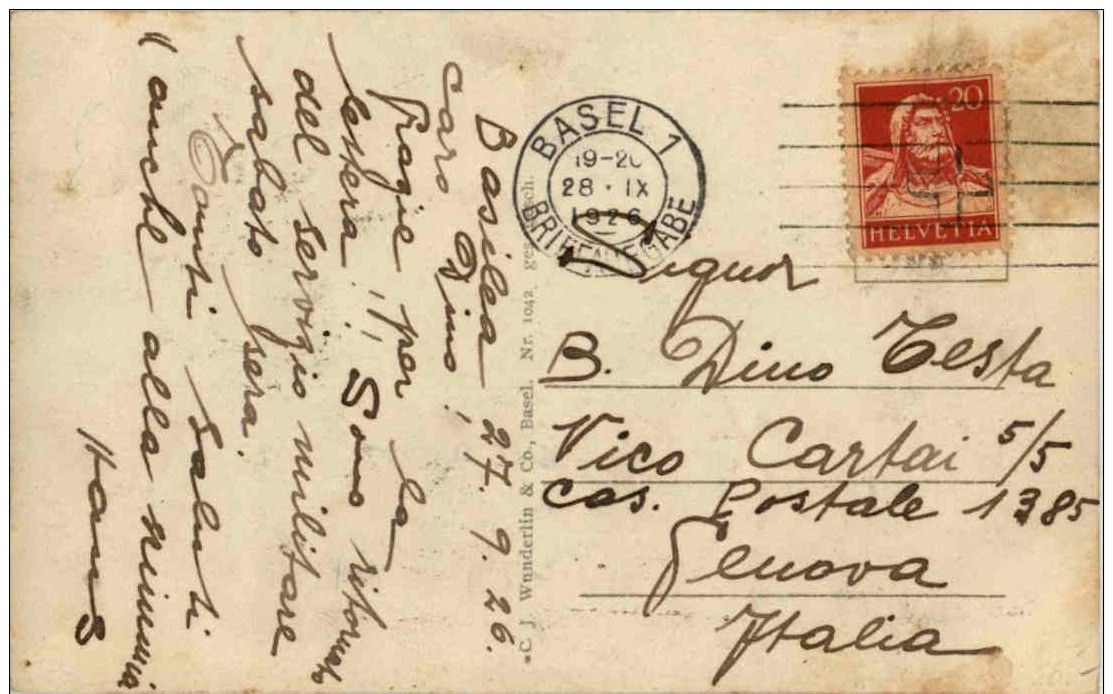 Basilea 27. 9. 26.
Caro Dino!
Grazie per la
lettera!! Sono ritornato
del servizio militare
sabato sera.
Tanti saluti
(anche alla mimma
Hans
C. J. Wunderlin & Co., Basel. Nr. 1042 ges. gesch.
BASEL 1
19-20
28·IX
1926
BRIEFAUFGABE
20
HELVETIA
Signor
B. Dino Testa
Vico Cartai 5/5
Cas. Postale 1385
Genova
Italia